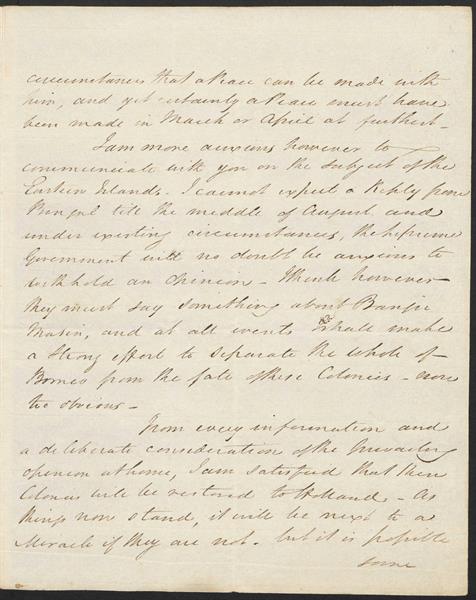 circumstances that a Peace can be made with
him, and yet certainly a Peace must have
been made in March or April at furthest –
I am more anxious however to
communicate with you on the subject of the
Eastern Islands – I cannot expect a Reply from
Bengal till the middle of August and
under existing circumstances, the Supreme
Government will no doubt be anxious to
withhold an opinion – I think however
they must say something about Banjer
Masin, and at all events I shall make
a strong effort to separate the whole of
Borneo from the fate of these Colonies –
too obvious –
From every information and
a deliberate consideration of the prevailing
opinion at home, I am satisfied that these
Colonies will be restored to Holland – As
things now stand, it will be next to a
Miracle if they are not. but it is possible
some